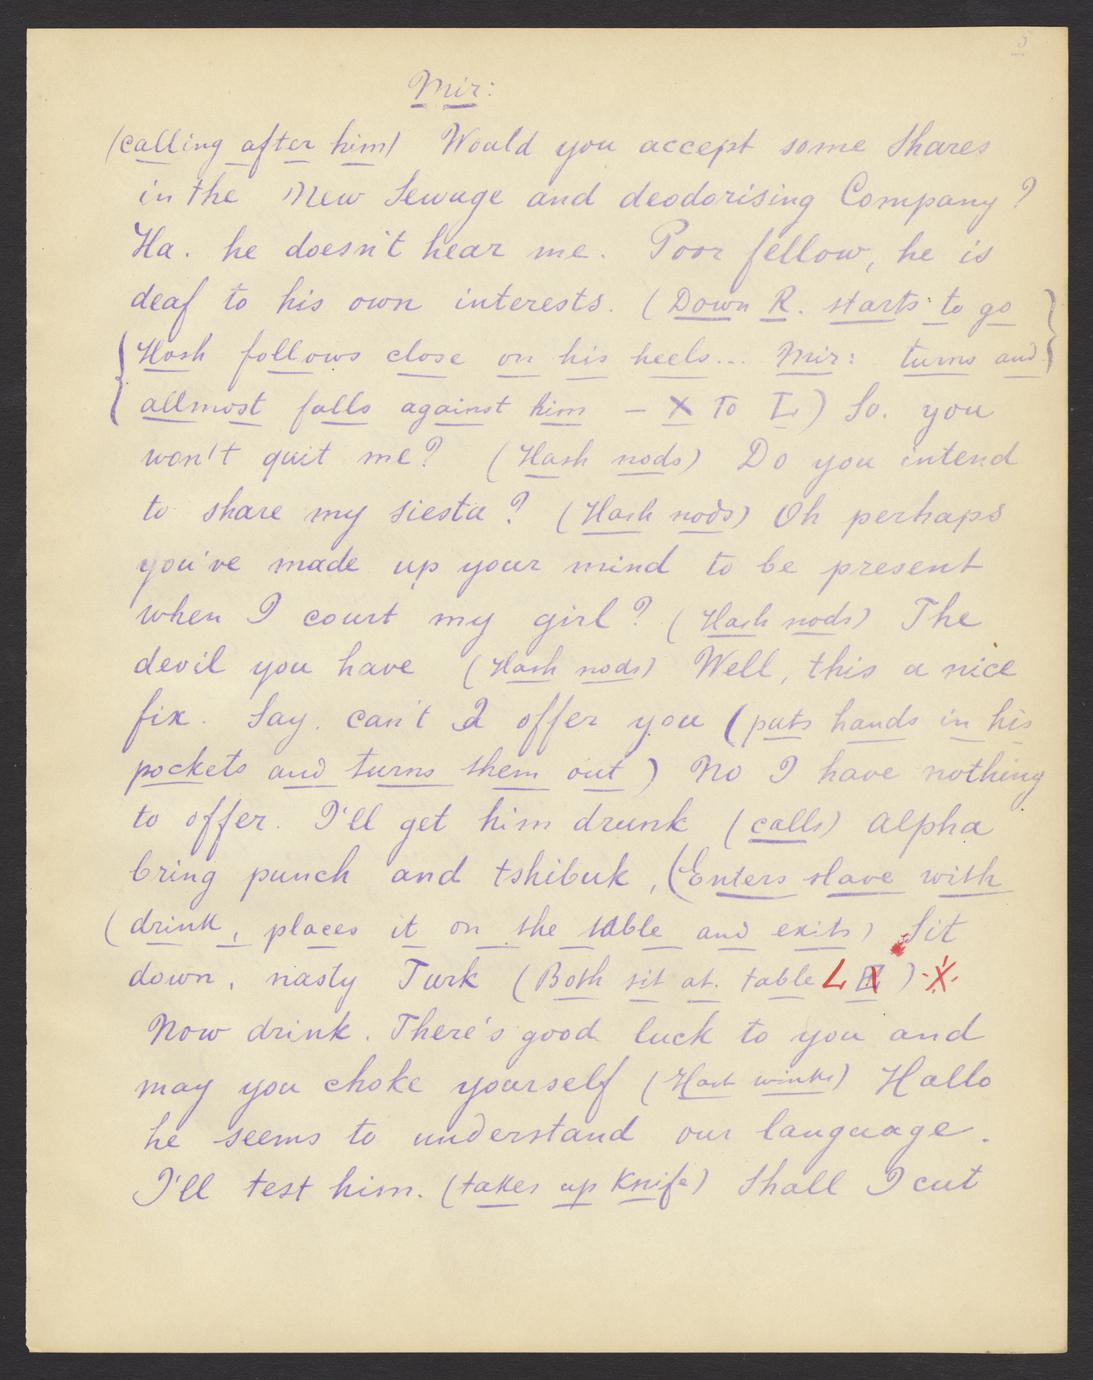 5
Mir:
(calling after him) Would you accept some Shares
in the New Sewage and deodorising Company?
Ha. he doesn't hear me. Poor fellow, he is
deaf to his own interests. (Down R. starts to go
Hash follows close on his heels... Mir: turns and
allmost falls against him - X To L) So. you
won't quit me? (Hash nods) Do you intend
to share my siesta? (Hash nods) Oh perhaps
you've made up your mind to be present
when I court my girl? (Hash nods) The
devil you have (Hash nods) Well, this a nice
fix. Say. can't I offer you (puts hands in his
pockets and turns them out) No I have nothing
to offer. I'll get him drunk (calls) Alpha
bring punch and tshibuk, (Enters slave with
(drink, places it on the table and exits) Sit
down, nasty Turk (Both sit at table L) X
Now drink. There's good luck to you and
may you choke yourself (Hash winks) Hallo
he seems to understand our language.
I'll test him. (takes up Knife) Shall I cut